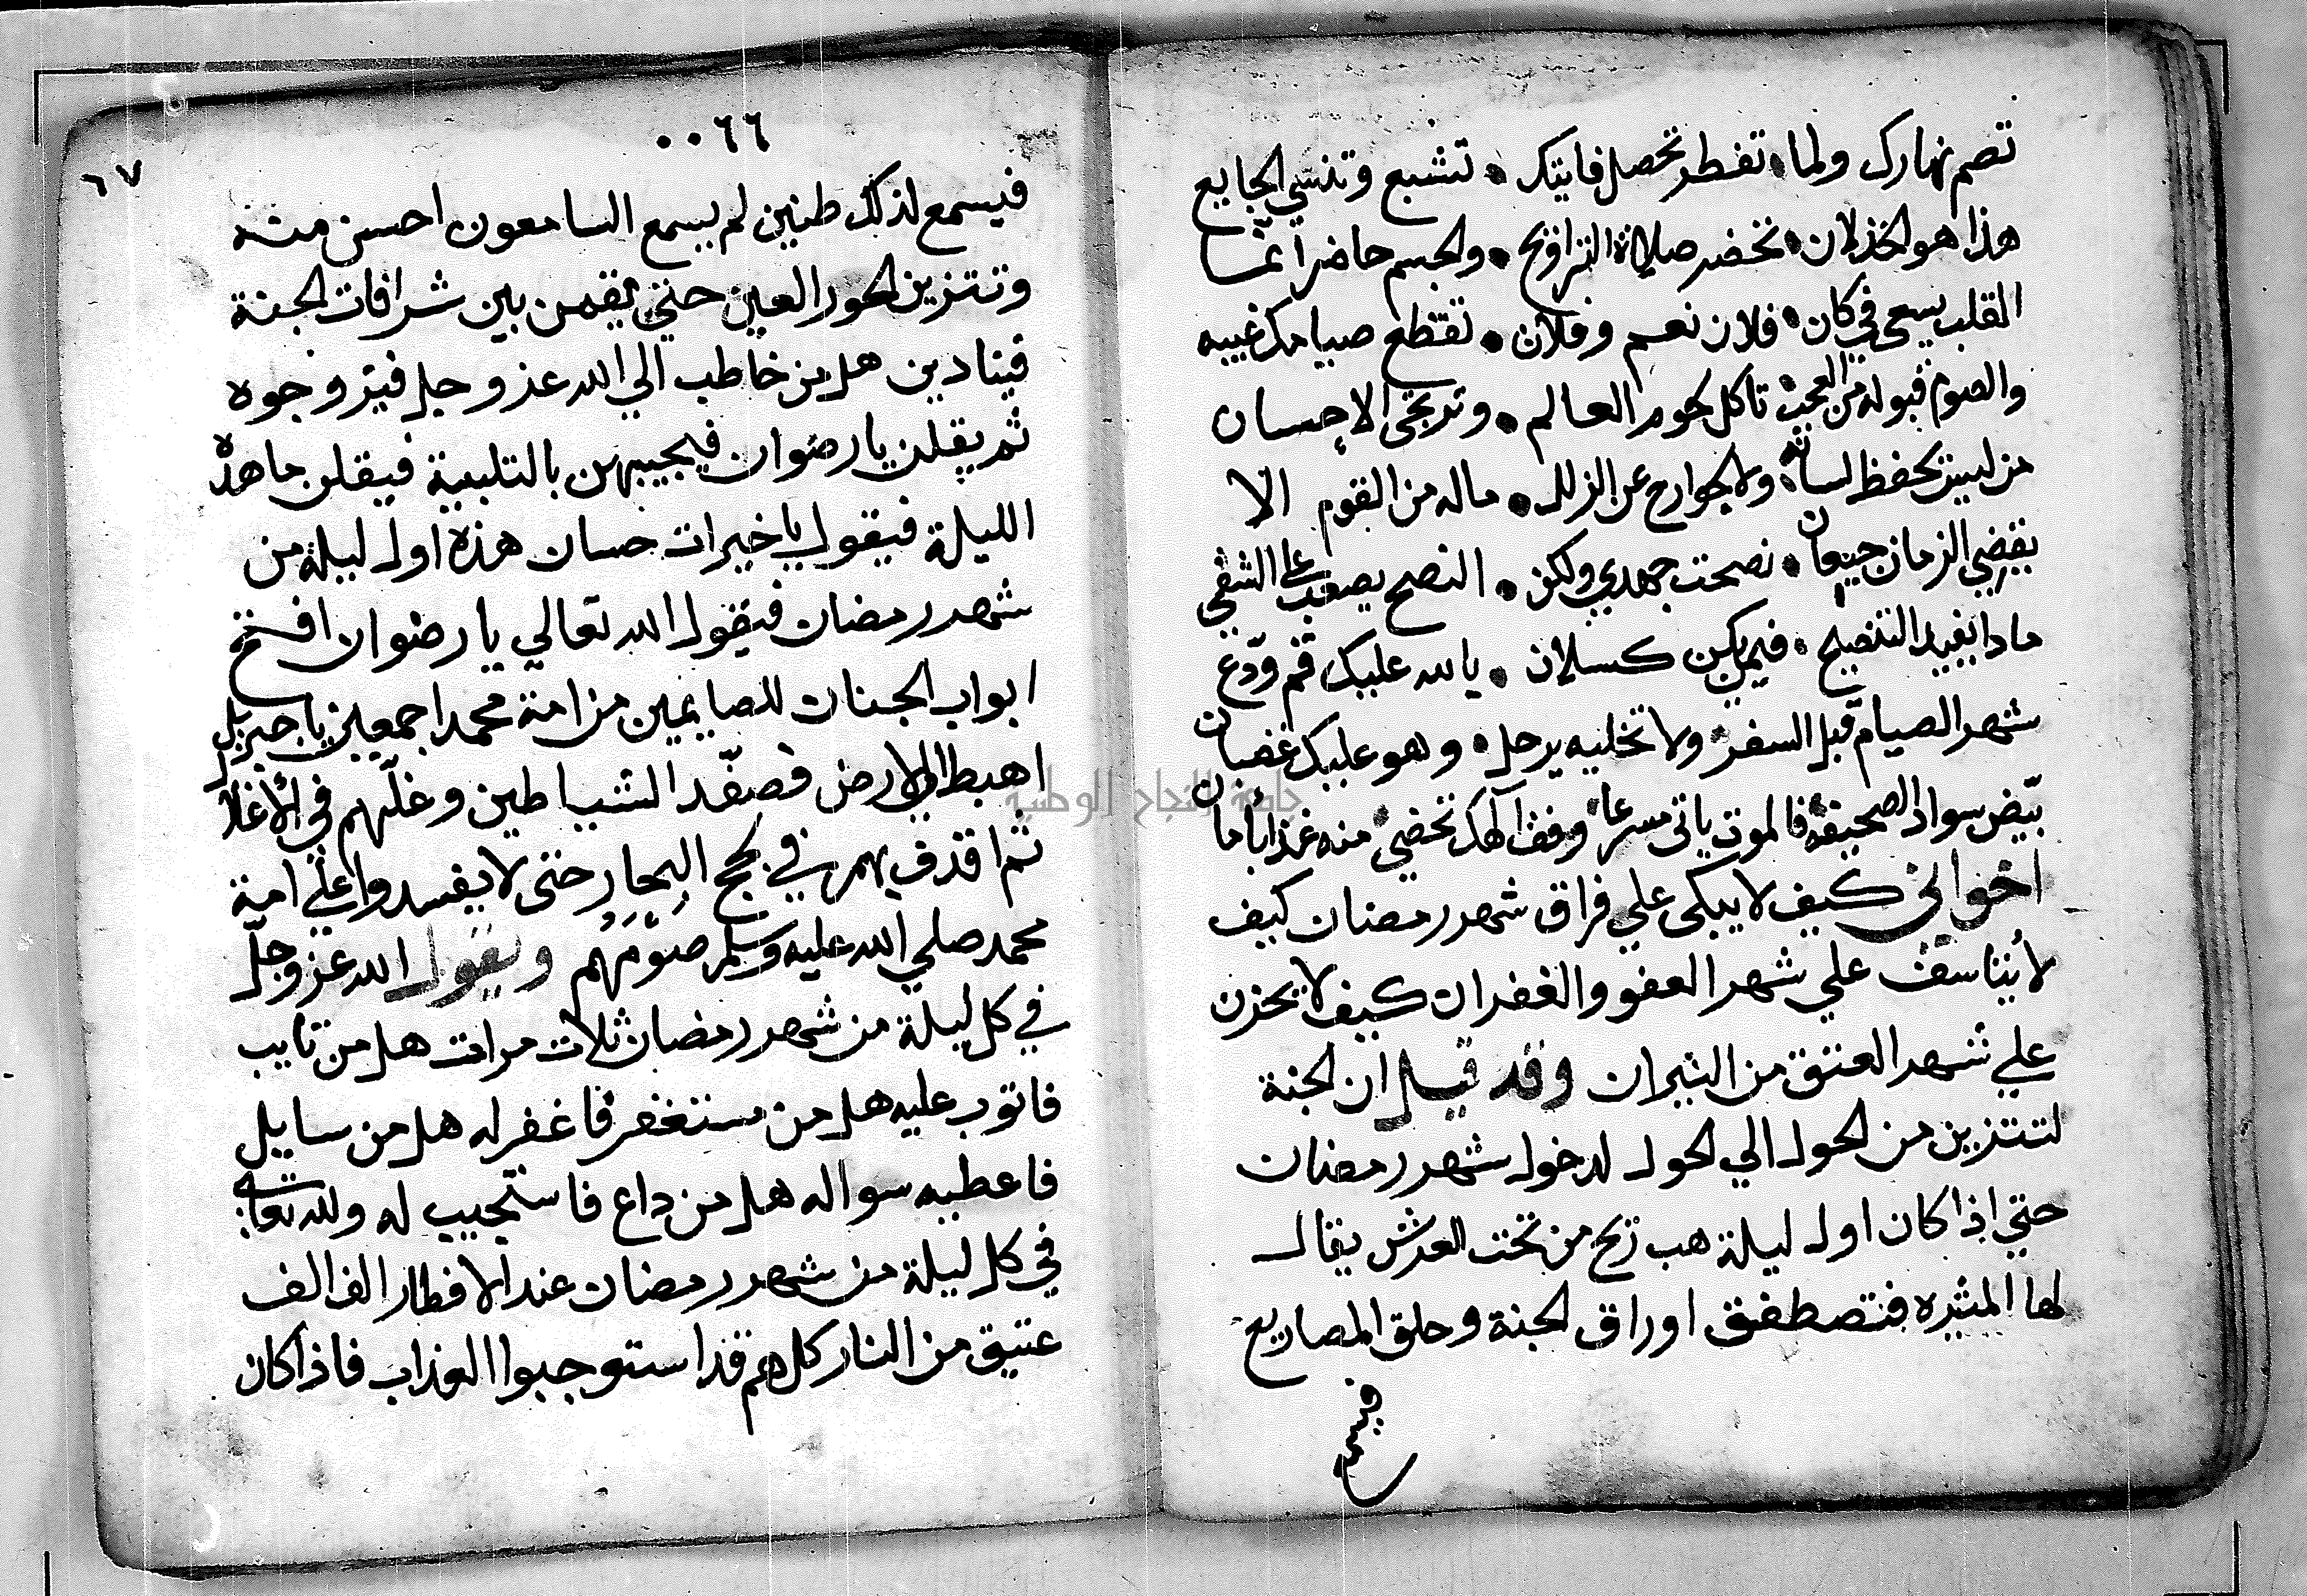 تصم نهارك ولما۰ تفطر تحصل فايتك ۰ تشبع وتنسي الجايع
هذا هو الخذلان۰ تحضر صلاة التراويح ۰ والجسم حاضر انما
القلب يسعى في كان۰ فلان نعم وفلان ۰ تقطع صيامك غيبه
والصوم قبوله من العجب تاكل لحوم العالم ۰ وترتجى الاحسان
من ليس يحفظ لسانه ولا جوارح عن الزلل ۰ ماله من القوم الا
يقضي الزمان جيعان ۰ نصحت جهدي ولكن ۰ النصح يصعب على الشقي
ماذا يفيد التنصيح ۰ فيمن يكن كسلان ۰ يا لله عليك قم ودّع
شهر الصيام قبل السفر ولا تخليه يرحل ۰ وهو عليك غضبان
بيّض سواد الصحيفة فالموت ياتى مسرعا وقف تحضي منه غدا بأمان
اخواني كيف لا يبكى علي فراق شهر رمضان كيف
لا يتاسف علي شهر العفو والغفران كيف لا يحزن
علي شهر العتق من النيران وقد قيل ان الجنة
لتتزين من الحول الي الحول لدخول شهر رمضان
حتي اذا كان اول ليلة هب ريح من تحت العرش يقال
لها المثيره فتصطفق اوراق الجنة وحلق المصاريع
فيسمع
٠٠٦٦
٦٧
فيسمع لذلك طنين لم يسمع السامعون احسن منه
وتتزين الحور العين حتي يقمن بين شرافات الجنة
فينادين هل من خاطب الي الله عز وجل فيزوجوه
ثم يقلن يا رضوان فيجيبهن بالتلبية فيقلن ما هذه
الليلة فيقول يا خيرات حسان هذه اول ليلة من
شهر رمضان فيقول الله تعالي يا رضوان افتح
ابواب الجنات للصايمين من امة محمد اجمعين يا جبريل
اهبط الي الارض فصفّد الشياطين وغلّهم في الأغلال
ثم اقذف بهم في لجج البحار حتى لا يفسدوا علي امة
محمد صلي الله عليه وسلم صَوْمَهُم ويقول الله عز وجلّ
في كل ليلة من شهر رمضان ثلاث مرات هل من تايب
فاتوب عليه هل من مستغفر فاغفر له هل من سايل
فاعطيه سواله هل من داع فاستجيب له ولله تعالى
في كل ليلة من شهر رمضان عند الافطار الف الف
عتيق من النار كلهم قد استوجبوا العذاب فاذا كان
جامعة النجاح الوطنية